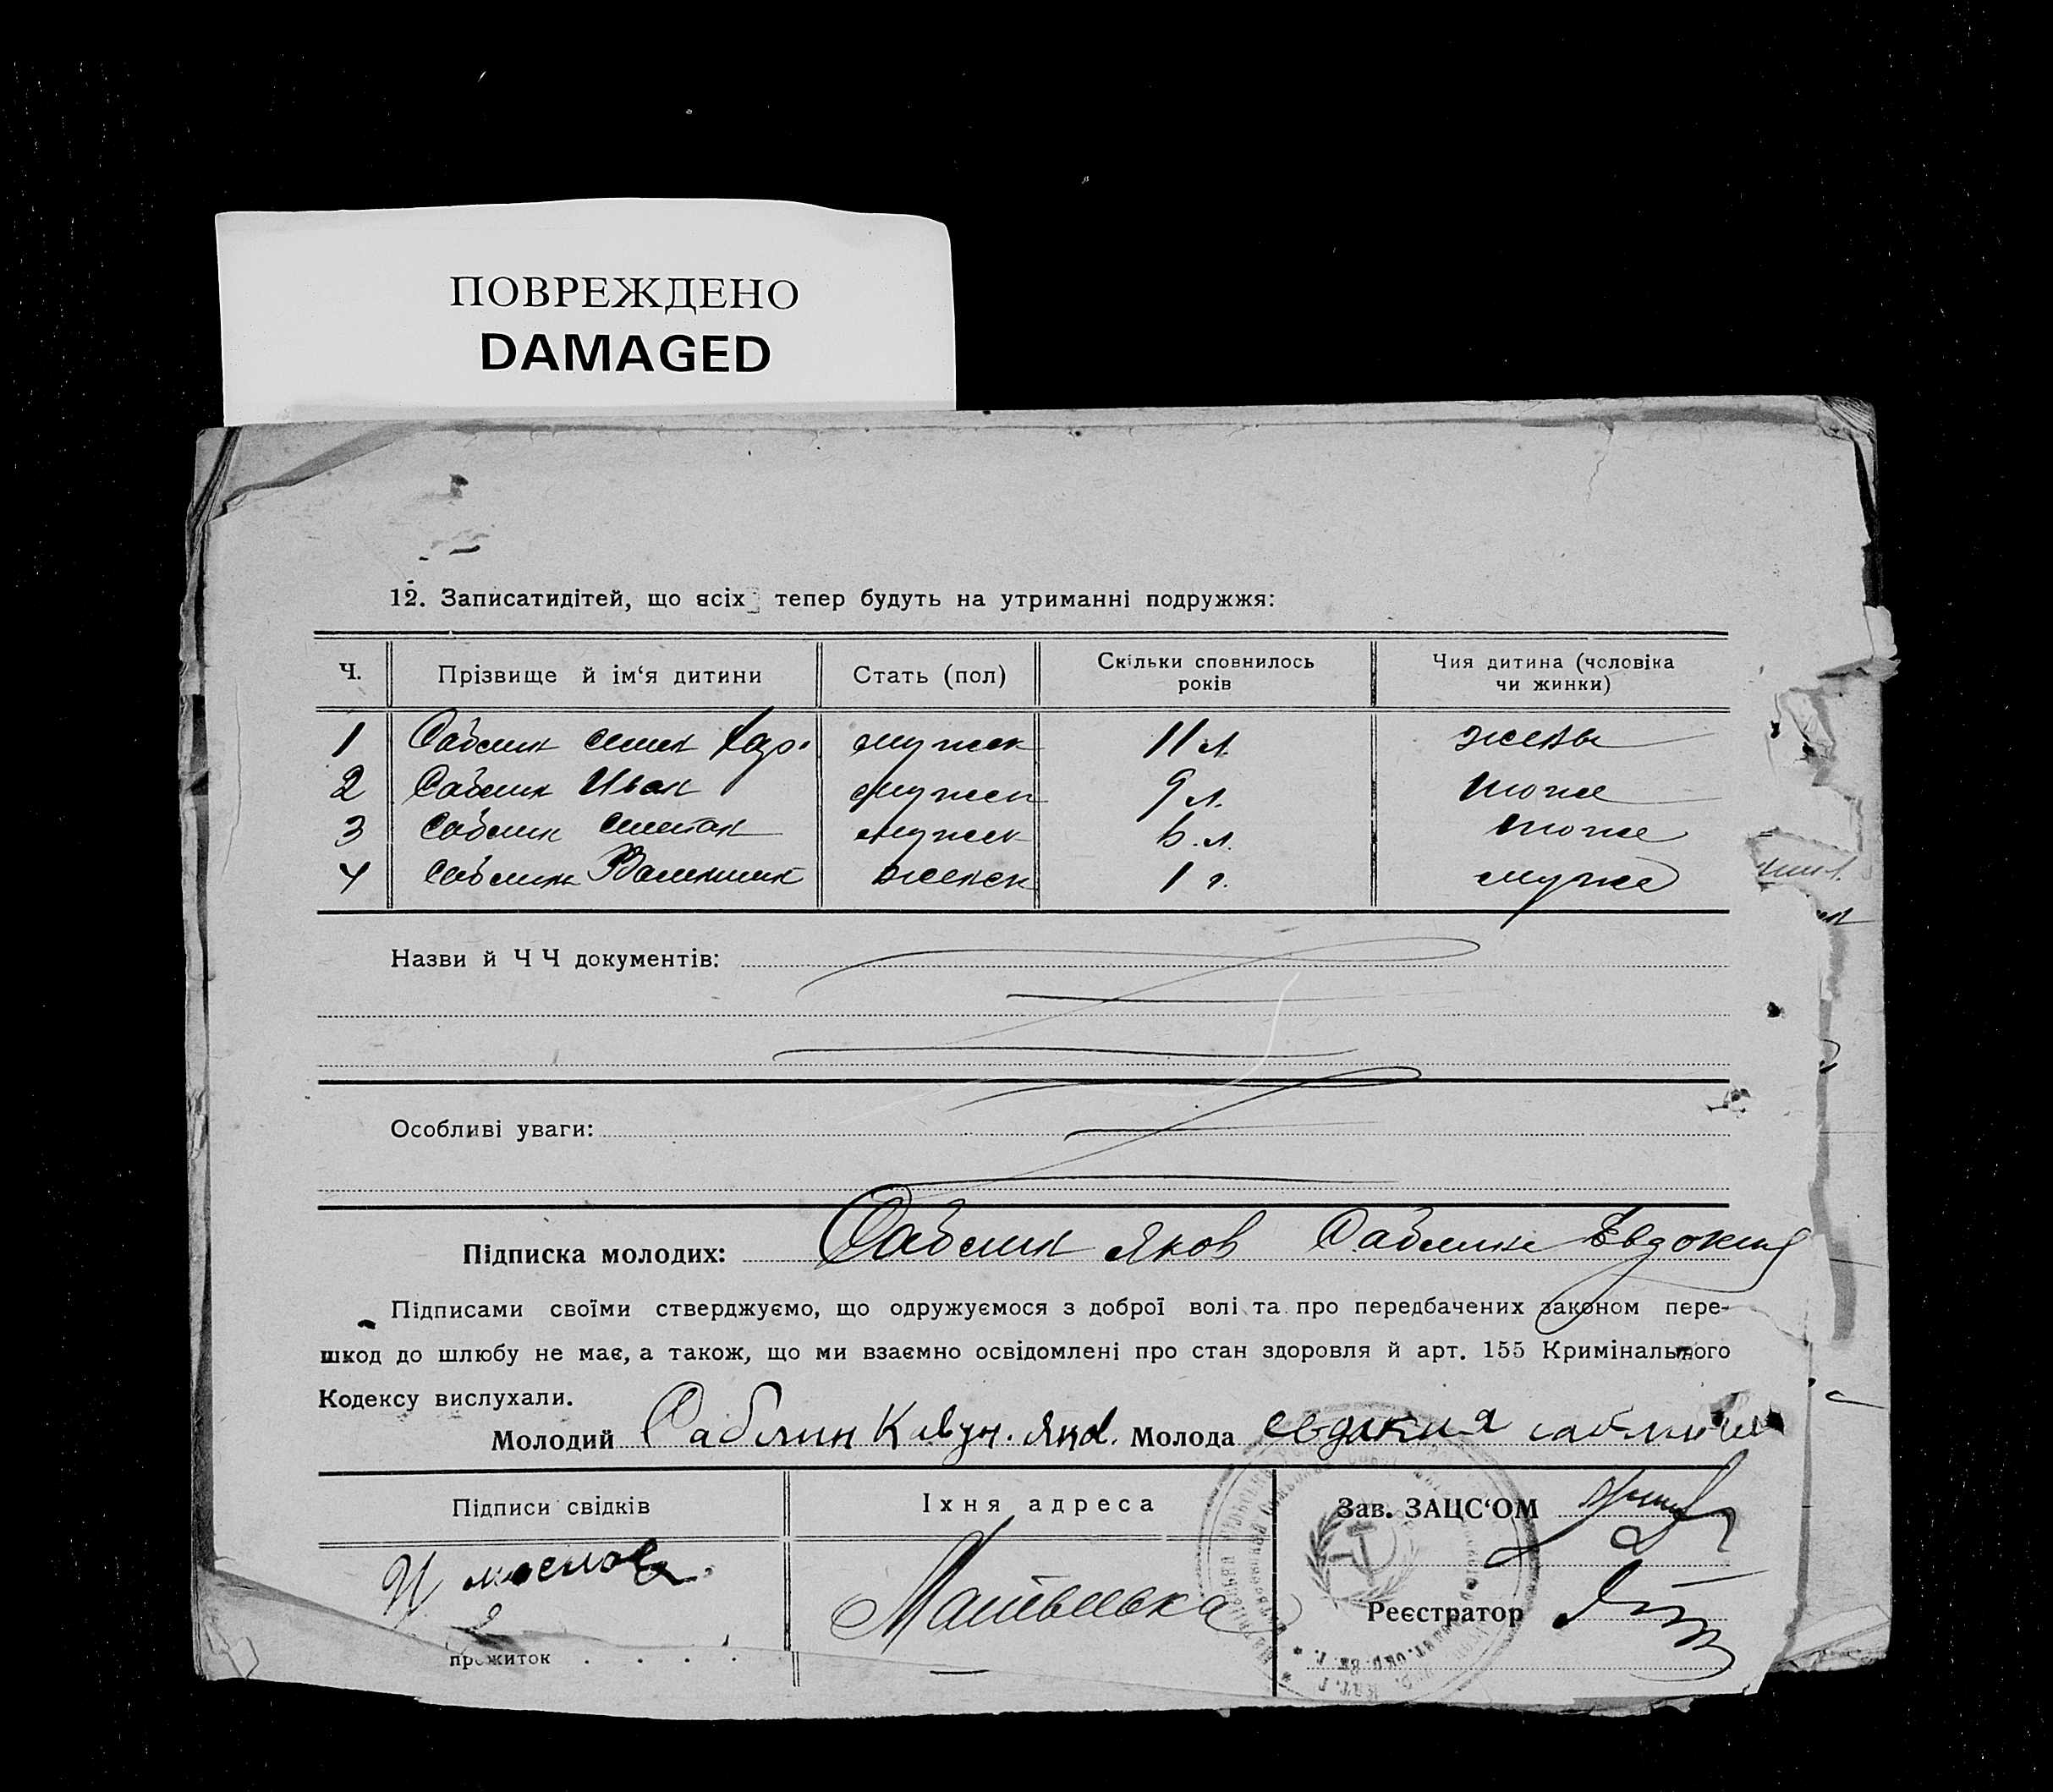 ПОВРЕЖДЕНО
DAMAGED
12. Записатидітей, що всіх тепер будуть на утриманні подружжя:
Ч. Прізвище й ім‘я дитини Стать (пол) Скільки сповнилось років Чия дитина (чоловіка чи жинки)
1 Саблин мужск 11 л. жены
2 Саблин Иван мужск 9 л. тоже
3 Саблин Степан мужск 6 л. тоже
4 Саблина женск 1 г. мужа
Назви й Ч Ч документів:
Особливі уваги:
Підписка молодих: Саблин Яков Саблина Евдокия
Підписами своїми стверджуємо, що одружуємося з доброї волі та про передбачених законом пере-
шкод до шлюбу не має, а також, що ми взаємно освідомлені про стан здоровля й арт. 155 Кримінального
Кодексу вислухали.
Молодий Саблин Молода евдакия
Підписи свідків Їхня адреса Зав. ЗАЦС‘ОМ
Матвеевка Реєстратор
прожиток . . . .